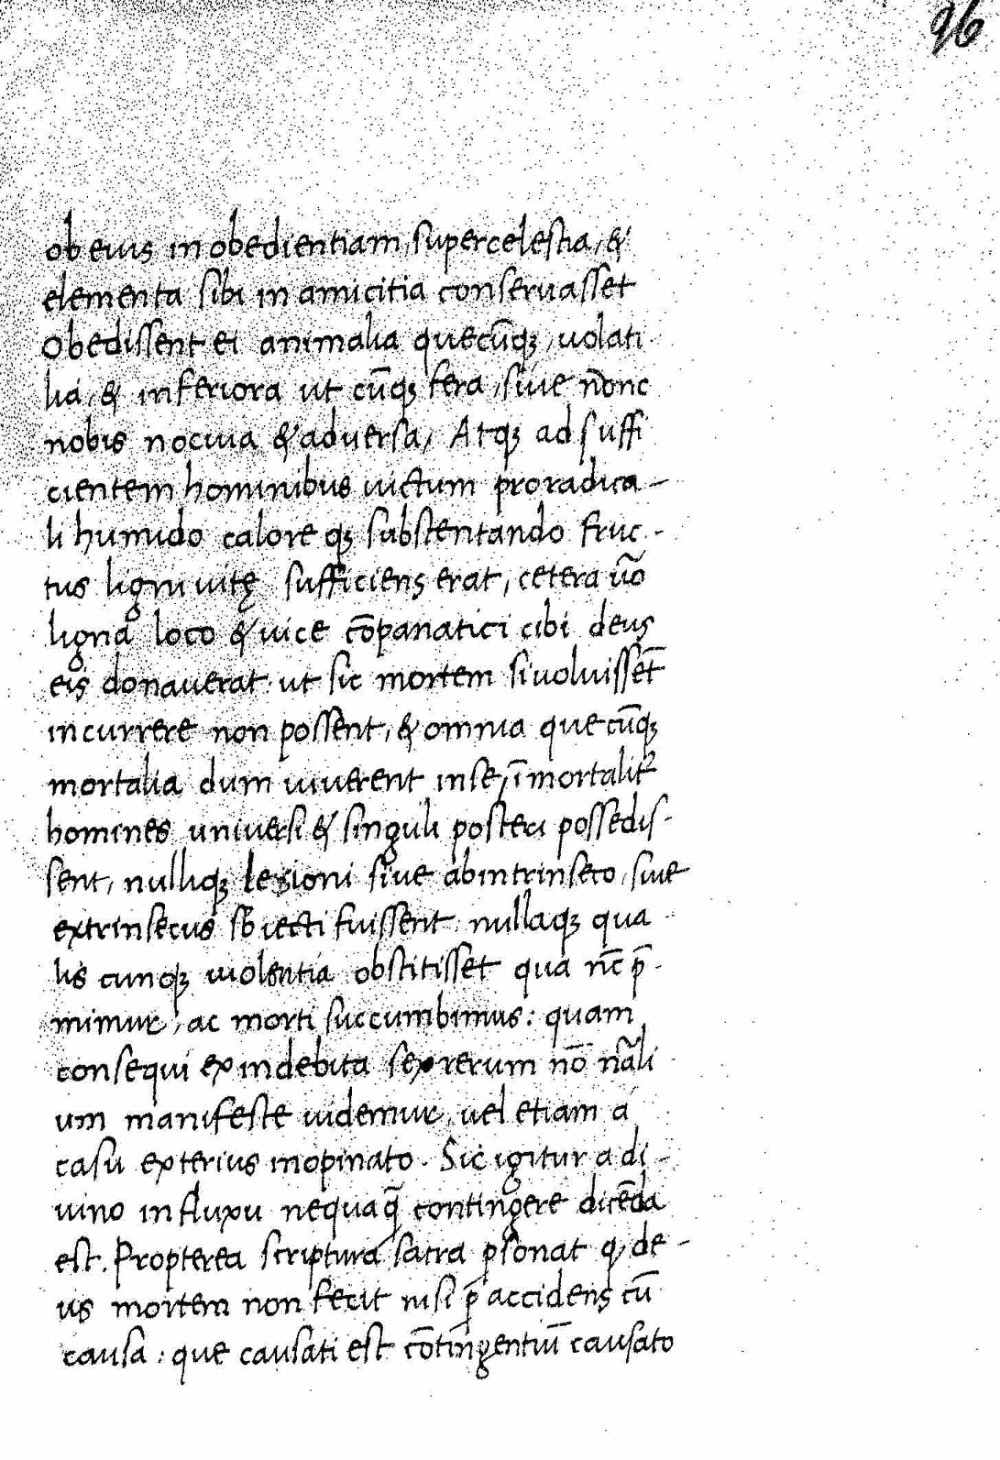 96
ob eius in obedientiam, supercelestia, &
elementa sibi in amicitia conseruasset
Obedissent ei animalia quecūqꝫ, uolati
lia, & inferiora ut cūqꝫ fera, siue
nobis nociua & aduersa, Atqꝫ ad suffi
cientem hominibus uictum pro radica-
li humido calore qꝫ substentando fruc-
tus ligni uitę sufficiens erat, cetera uo̅
ligna loco & uice co̅panatici cibi deus
eis donauerat ut sic mortem si uoluisset̅
incurrere non possent, & omnia que cūqꝫ
mortalia dum uiuerent in se, i̅mortalit
homines uniuersi & singuli posteri possedis-
sent, nulliqꝫ lesioni siue abintrinseco, siue
extrinsecus sb̅iecti fuissent nullaqꝫ qua
lis cunqꝫ uiolentia obstitisset qua nc̅ p̅-
mimur, ac morti succumbimus: quam
consequi ex indebita rerum no̅ na̅li
um manifeste uidemur, uel etiam a
casu exterius inopinato. Sic igitur a di-
uino influxu nequaq̅ contingere dice̅da
est. Propterea scriptura sacra psonat q, de-
us mortem non fecit nisi p̅ accidens cu̅
causa: que causati est co̅tingentiu̅ causato